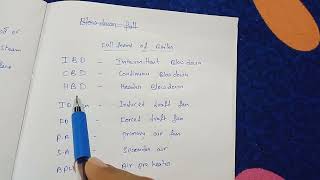 of or
Steam
Blow down Full
Full form of Boiler
I B D – Intermittent Blowdown
C B D – Continuous Blowdown
H B D – Header Blowdown
I D – Induced draft fan
F D – Forced draft fan
P.A – primary air fan
S.A – air
APH – Air pre heater